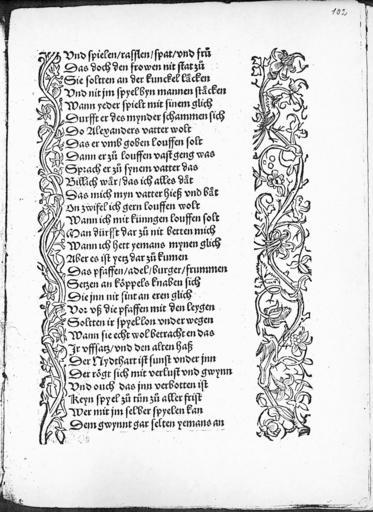 102
Vnd spielen/rasslen/spat/vnd frů
Das doch den frowen nit stat zů
Sie soltten an der kunckel läcken
Vnd nit jm spyel byn mannen stäcken
Wann yeder spielt mit sinem glich
Durfft er des mynder schammen sich
Do Alexanders vatter wolt
Das er vmb goben louffen solt
Dann er zů louffen vast geng was
Sprach er zů synem vatter das
Billich wär/das ich alles dät
Das mich myn vatter hieß vnd bät
On zwifel ich gern louffen wolt
Wann ich mit künngen louffen solt
Man dürfft dar zů nit betten mich
Wann ich hett yemans mynen glich
Aber es ist yetz dar zů kumen
Das pfaffen/adel/burger/frummen
Setzen an köppels knaben sich
Die jnn nit sint an eren glich
Vor vß die pfaffen mit den leygen
Soltten ir spyel lon vnder wegen
Wann sie echt wol betrachten das
Ir vffsatz/vnd den alten haß
Der Nydthart ist sunst vnder jnn
Der rögt sich mit verlust vnd gwynn
Vnd ouch das jnn verbotten ist
Keyn spyel zů tůn zů aller frist
Wer mit jm selber spyelen kan
Dem gwynnt gar selten yemans an